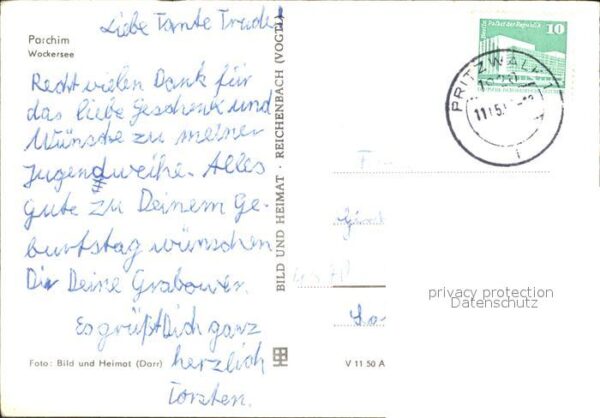 Liebe Tante Trude
Parchim
Wockersee
Recht vielen Dank für
das liebe Geschenk und
Wünsche zu meiner
Jugendweihe. Alles
Gute zu Deinem Ge-
burtstag wünschen
Dir Deine Grabower.
Es grüßt Dich ganz
herzlich
Torsten.
Foto: Bild und Heimat (Darr)
BILD UND HEIMAT · REICHENBACH (VOGTL)
V 11 50 A
Berlin, Palast der Republik
10
PRITZWALK 1
1920
privacy protection
Datenschutz